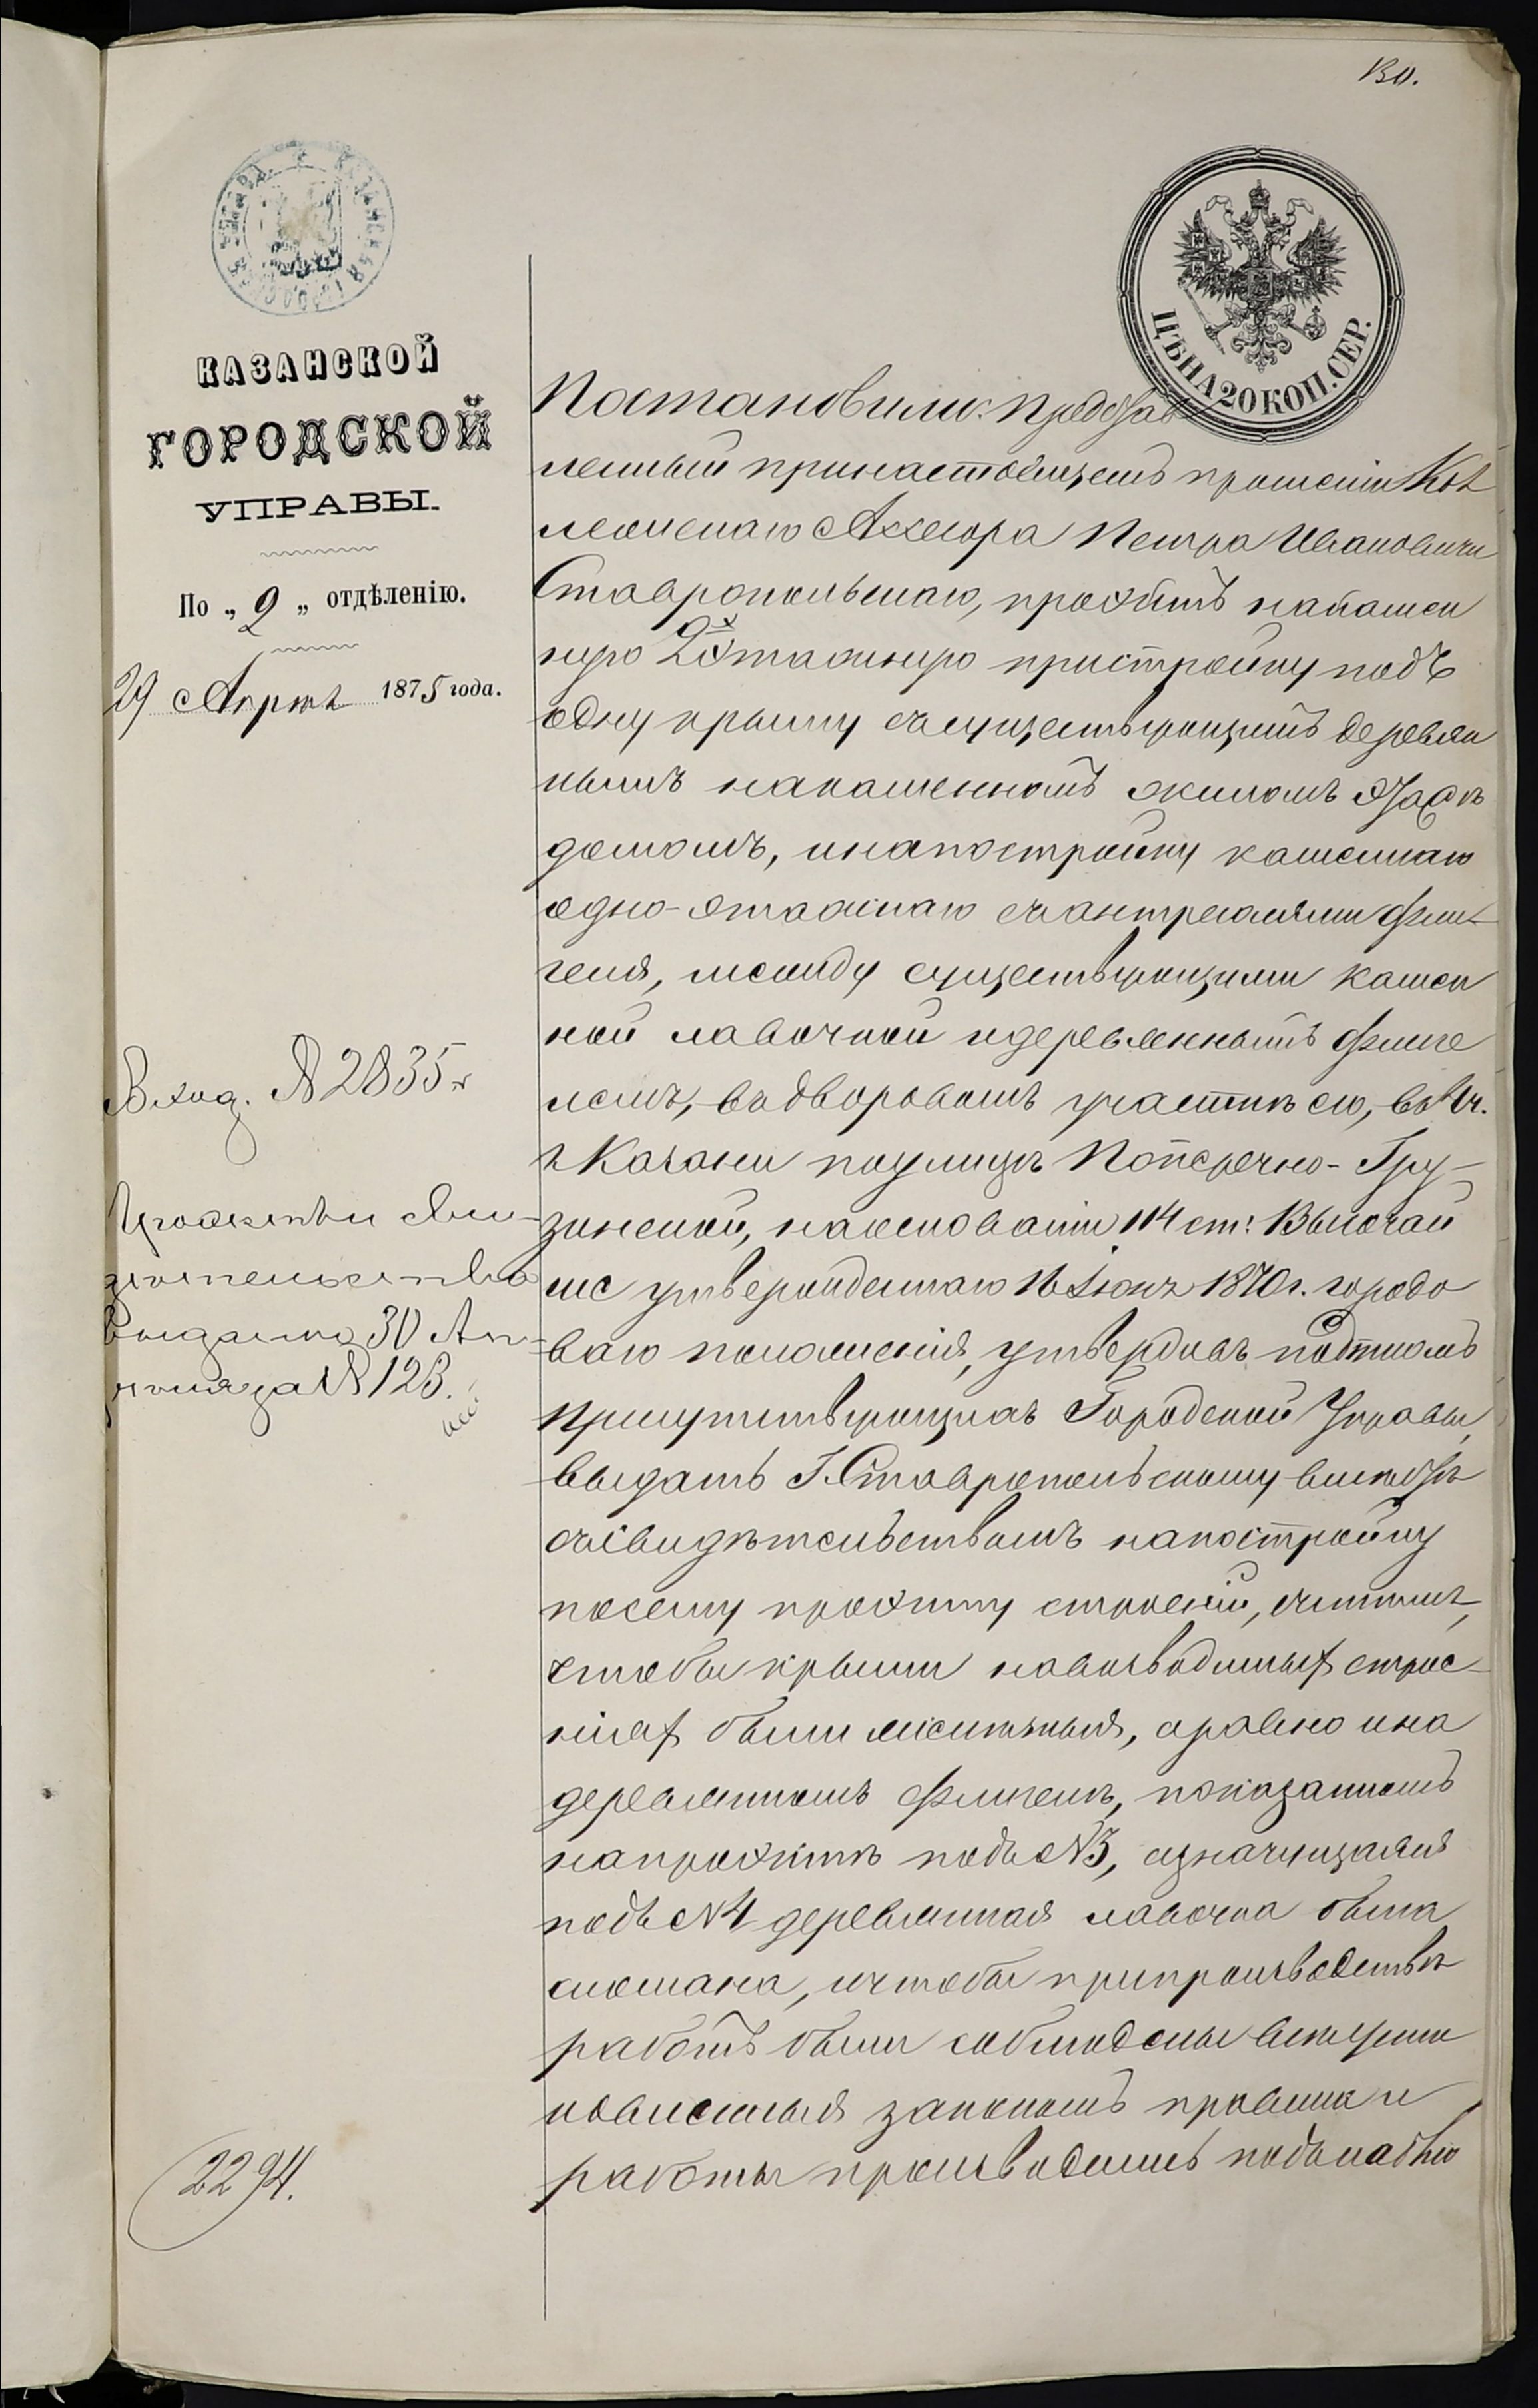 130.
КАЗАНСКАЯ ГОРОДСКАЯ УПРАВА
ЦѢНА 20 КОП. СЕР.
КАЗАНСКОЙ
ГОРОДСКОЙ
УПРАВЫ.
По „2„ отдѣленію.
29 Апрѣля 1875 года.
Вход. № 2835
Проэктъ и сви-
дѣтельство
выдано 30 Ап-
рѣля за № 123.
2294.
Постановили: Представ
ленный при настоящемъ прошеніи Кол
лежскаго Ассесора Петра Ивановича
Ставропольскаго, проэктъ на камен
ную 2х этажную пристройку подъ
одну крышу съ существующимъ деревян
нымъ на каменномъ жиломъ этажѣ
домомъ, и на постройку каменнаго
одно-этажнаго съ антресолями фли-
геля, между существующими камен
ной лавочкой и деревяннымъ флиге
лемъ, въ дворовомъ участкѣ его, въ 1 ч.
г. Казани по улицѣ Поперечно-Гру-
зинской, на основаніи 114 ст: Высочай
ше утвержденнаго 16 Іюня 1870 г. городо
ваго положенія, утвердивъ подписомъ
присутствующихъ Городской Управы,
выдать Г. Ставропольскому вмѣстѣ
съ свидѣтельствомъ на постройку
по сему проэкту строеній, съ тѣмъ,
чтобы крыши на возводимыхъ строе-
ніяхъ были желѣзныя, а равно и на
деревянномъ флигелѣ, показанномъ
на проэктѣ подъ № 3, а значущаяся
подъ № 4 деревянная лавочка была
сломана, и чтобы при производствѣ
работъ были соблюдены всѣ уста
новленныя закономъ правила и
работы производились подъ наблю